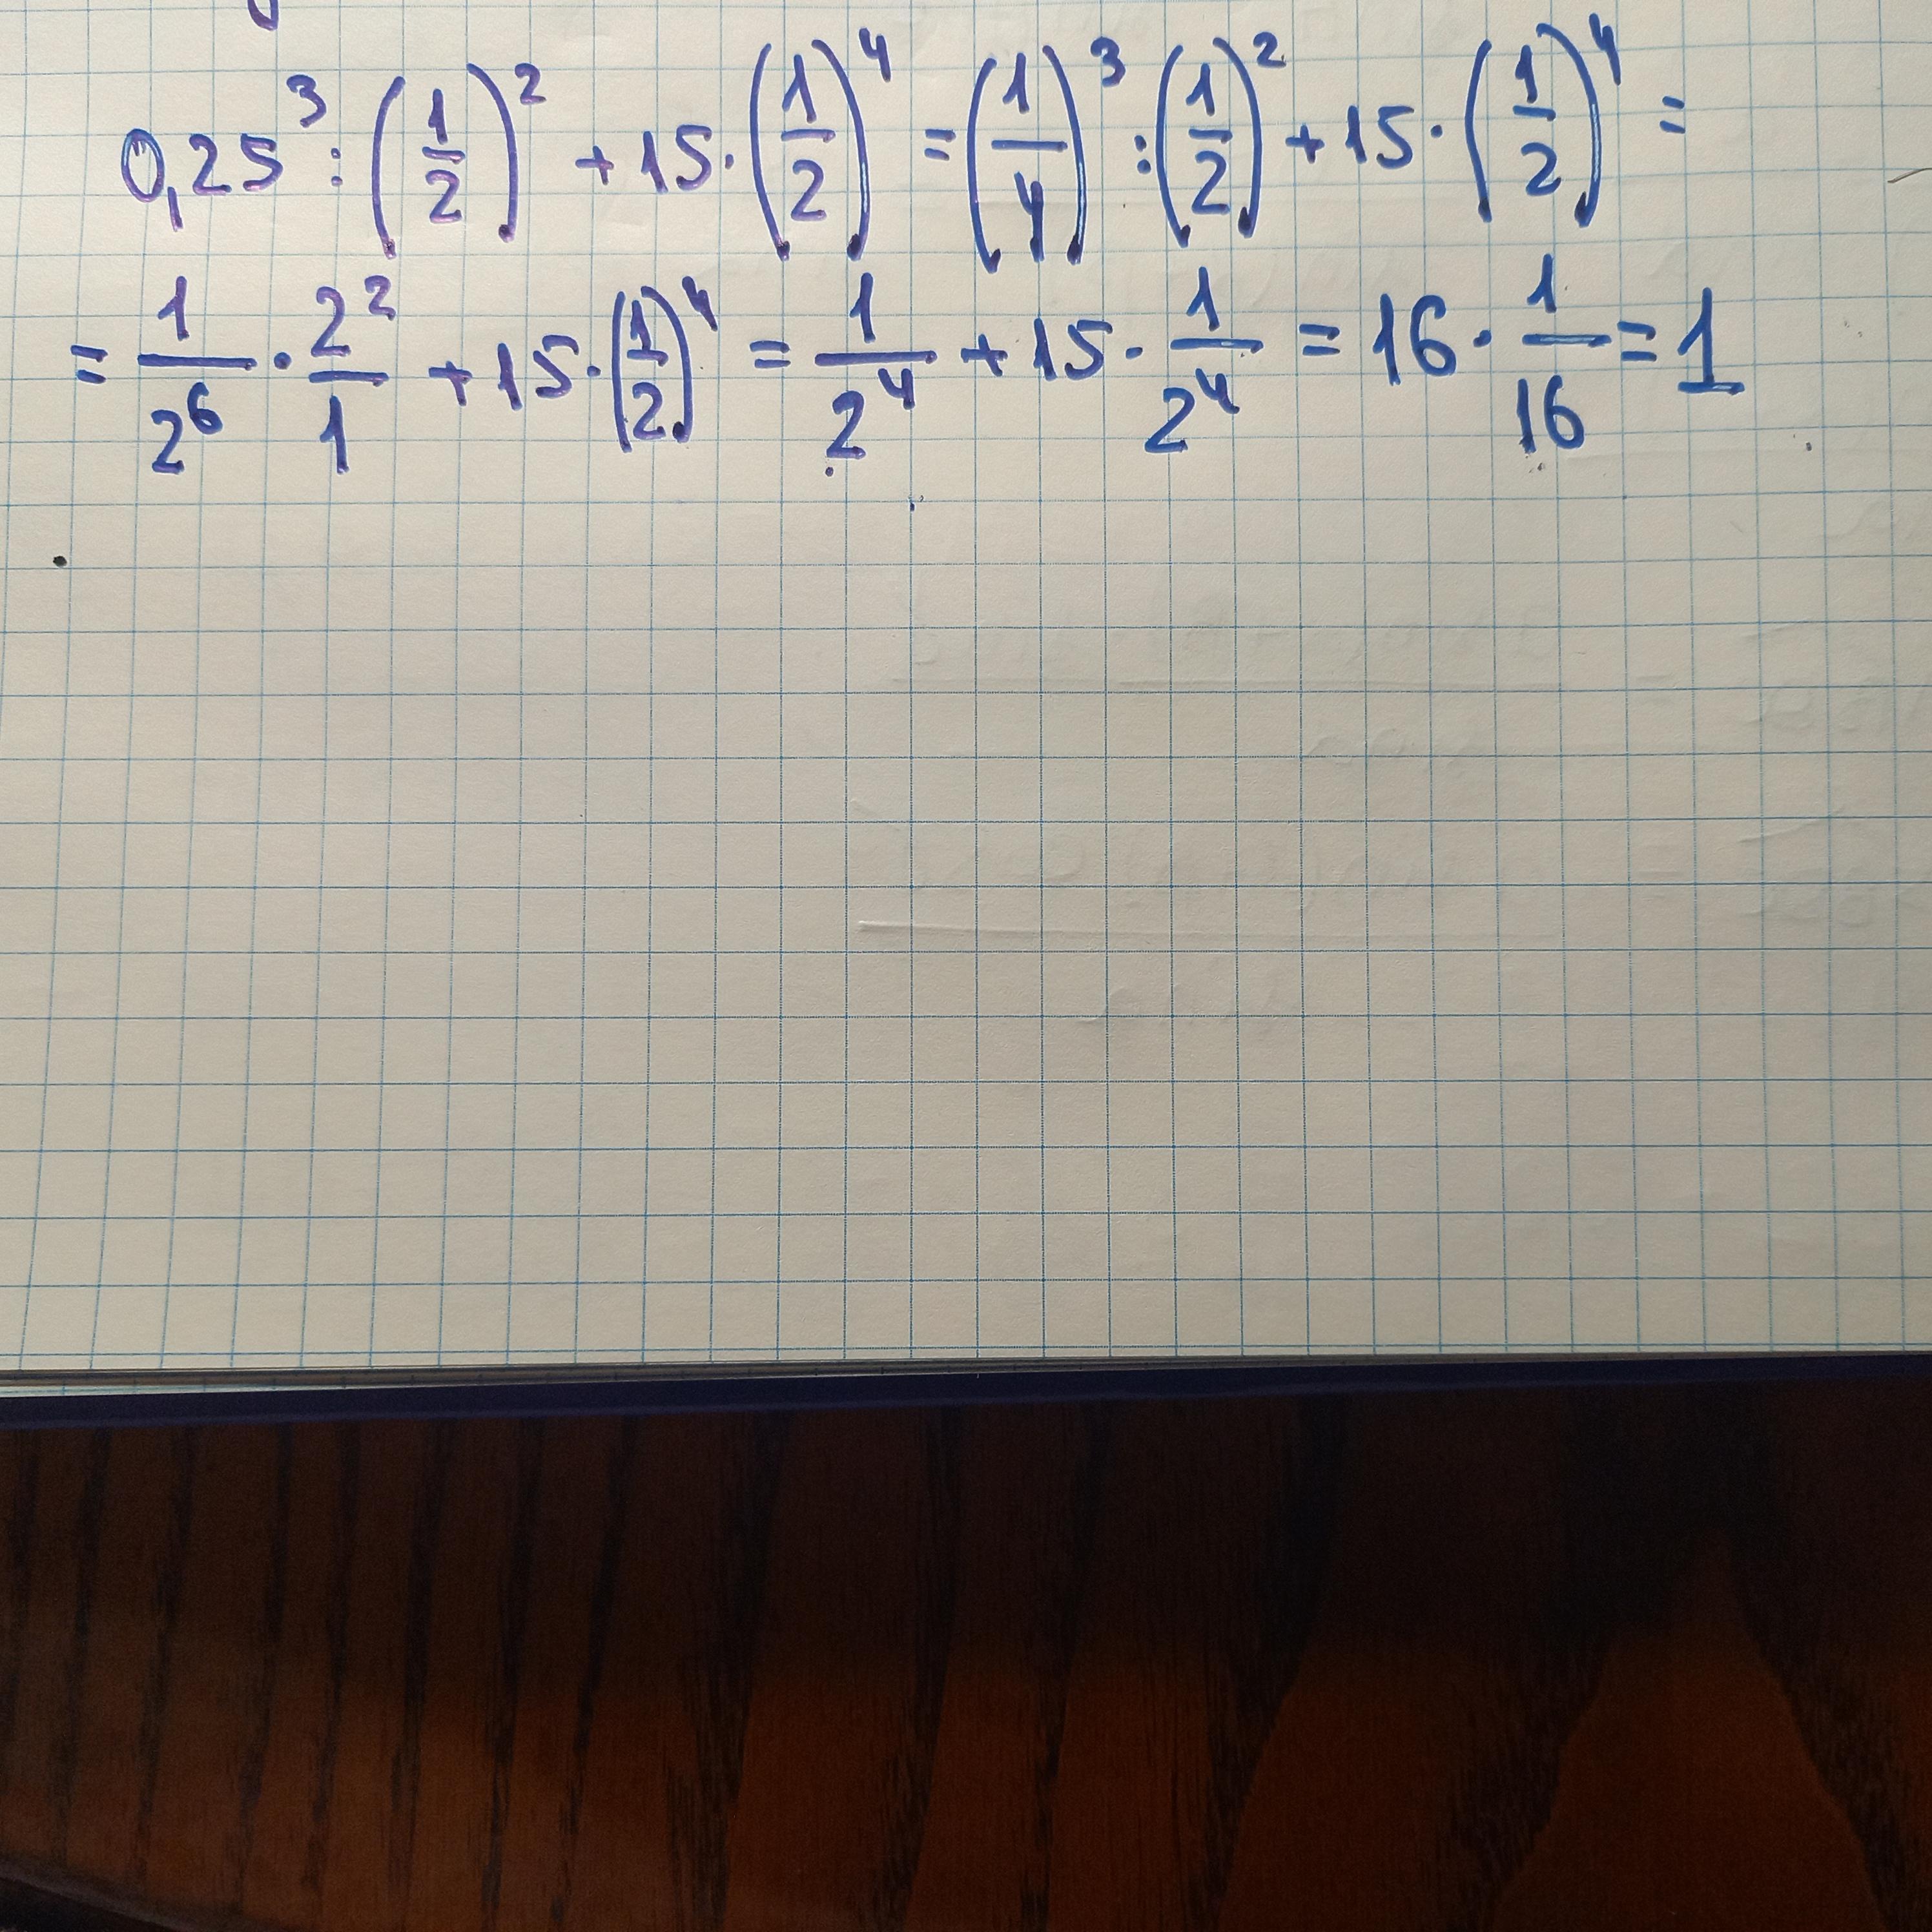 0,25³ : (1/2)² + 15 · (1/2)⁴ = (1/4)³ : (1/2)² + 15 · (1/2)⁴ =
= 1/2⁶ · 2²/1 + 15 · (1/2)⁴ = 1/2⁴ + 15 · 1/2⁴ = 16 · 1/16 = 1